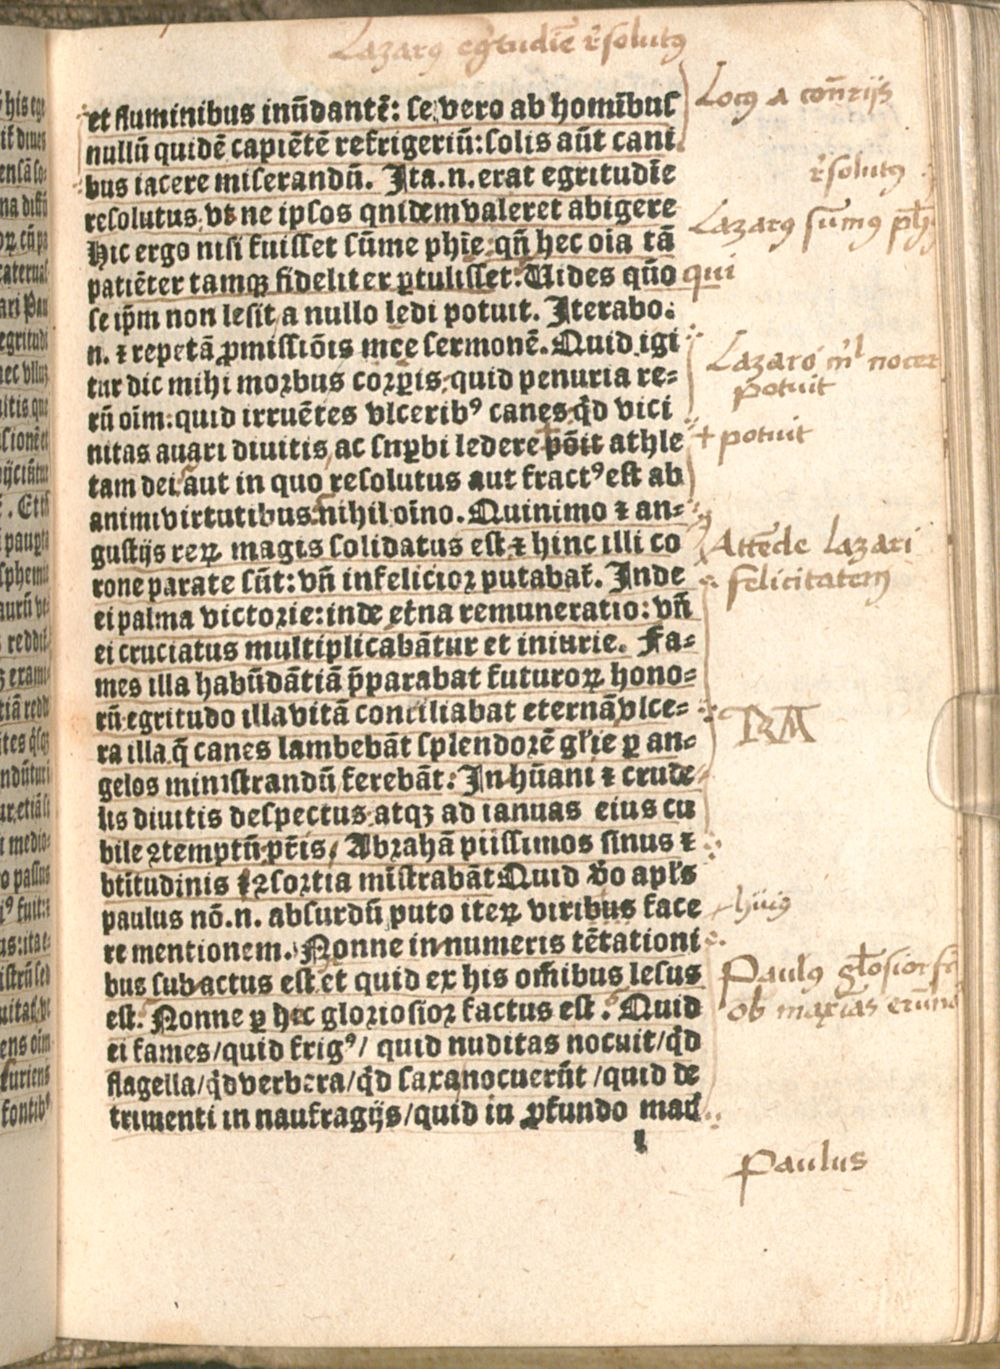 Lazarꝰ egr̄tudīe r̄solutꝰ
et fluminibus inūdantē: se vero ab homībus
nullū quidē capiētē refrigeriū: solis aūt cani
bus iacere miserandū. Ita .n. erat egritudīe
resolutus vt ne ipsos qnidem valeret abigere
Hic ergo nisi fuisset sūme phīe qn̄ hec oīa tā
patiēter tamqꝫ fideliter ꝑtulisset. Uides quō
se ip̄m non lesit a nullo ledi potuit. Iterabo.
n. ⁊ repetā ꝓmissiōis mee sermonē. Quid igi
tur dic mihi morbus corꝑis, quid penuria re⸗
rū oīm: quid irruētes vlceribꝰ canes qd̄ vici
nitas auari diuitis ac snꝑbi ledere pōit athle
tam dei, aut in quo resolutus aut fractꝰ est ab
animi virtutibus nihil oīno. Quinimo ⁊ an⸗
gustijs reꝝ magis solidatus est ⁊ hinc illi co
rone parate sūt: vn̄ infelicior putabat̄. Inde
ei palma victorie: inde etna remuneratio: vn̄
ei cruciatus multiplicabātur et iniurie. Fa⸗
mes illa habūdātiā p̄parabat futuroꝝ hono⸗
rū egritudo illa vitā conciliabat eternā vlce⸗
ra illa q̄ canes lambebāt splendorē gl̄ie ꝑ an⸗
gelos ministrandū ferebāt: In hūani ⁊ crude
lis diuitis despectus atqꝫ ad ianuas eius cu
bile ꝯtemptū pr̄is, Abrahā piissimos sinus ⁊
btītudinis ⁊ ꝯsortia mīstrabāt Quid ṽo apl̄s
paulus nō .n. absurdū puto iteꝝ viribus face
re mentionem. Nonne innumeris tētationi
bus subactus est et quid ex his om̄ibus lesus
est. Nonne ꝑ hec gloriosior factus est. Quid
ei fames/quid frigꝰ/ quid nuditas nocuit/qd̄
flagella/qd̄ verbera/qd̄ saxa nocuerūt /quid de
trimenti in naufragijs/quid in ꝓfundo mar̄
l
Locꝰ a con̄rijs
r̄solutꝰ
Lazarꝰ sūmꝰ
qui
Lazaro nl̄ nocer
potuit
+ potuit
Attēde Lazari
felicitatem
huiꝰ
Paulꝰ gl̄osior
ob
Paulus